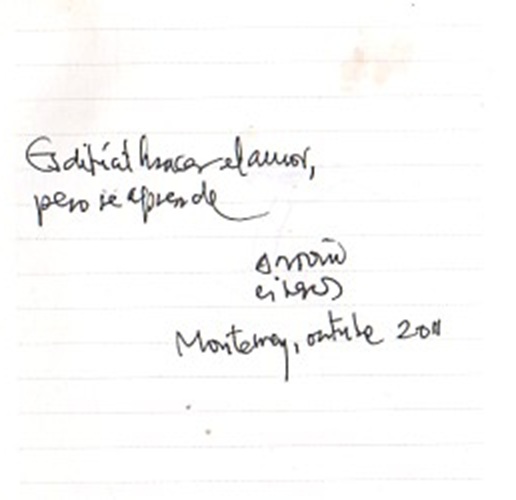 Es difícil hacer el amor,
pero se aprende
Antonio
Cisneros
Monterrey, octubre 2011